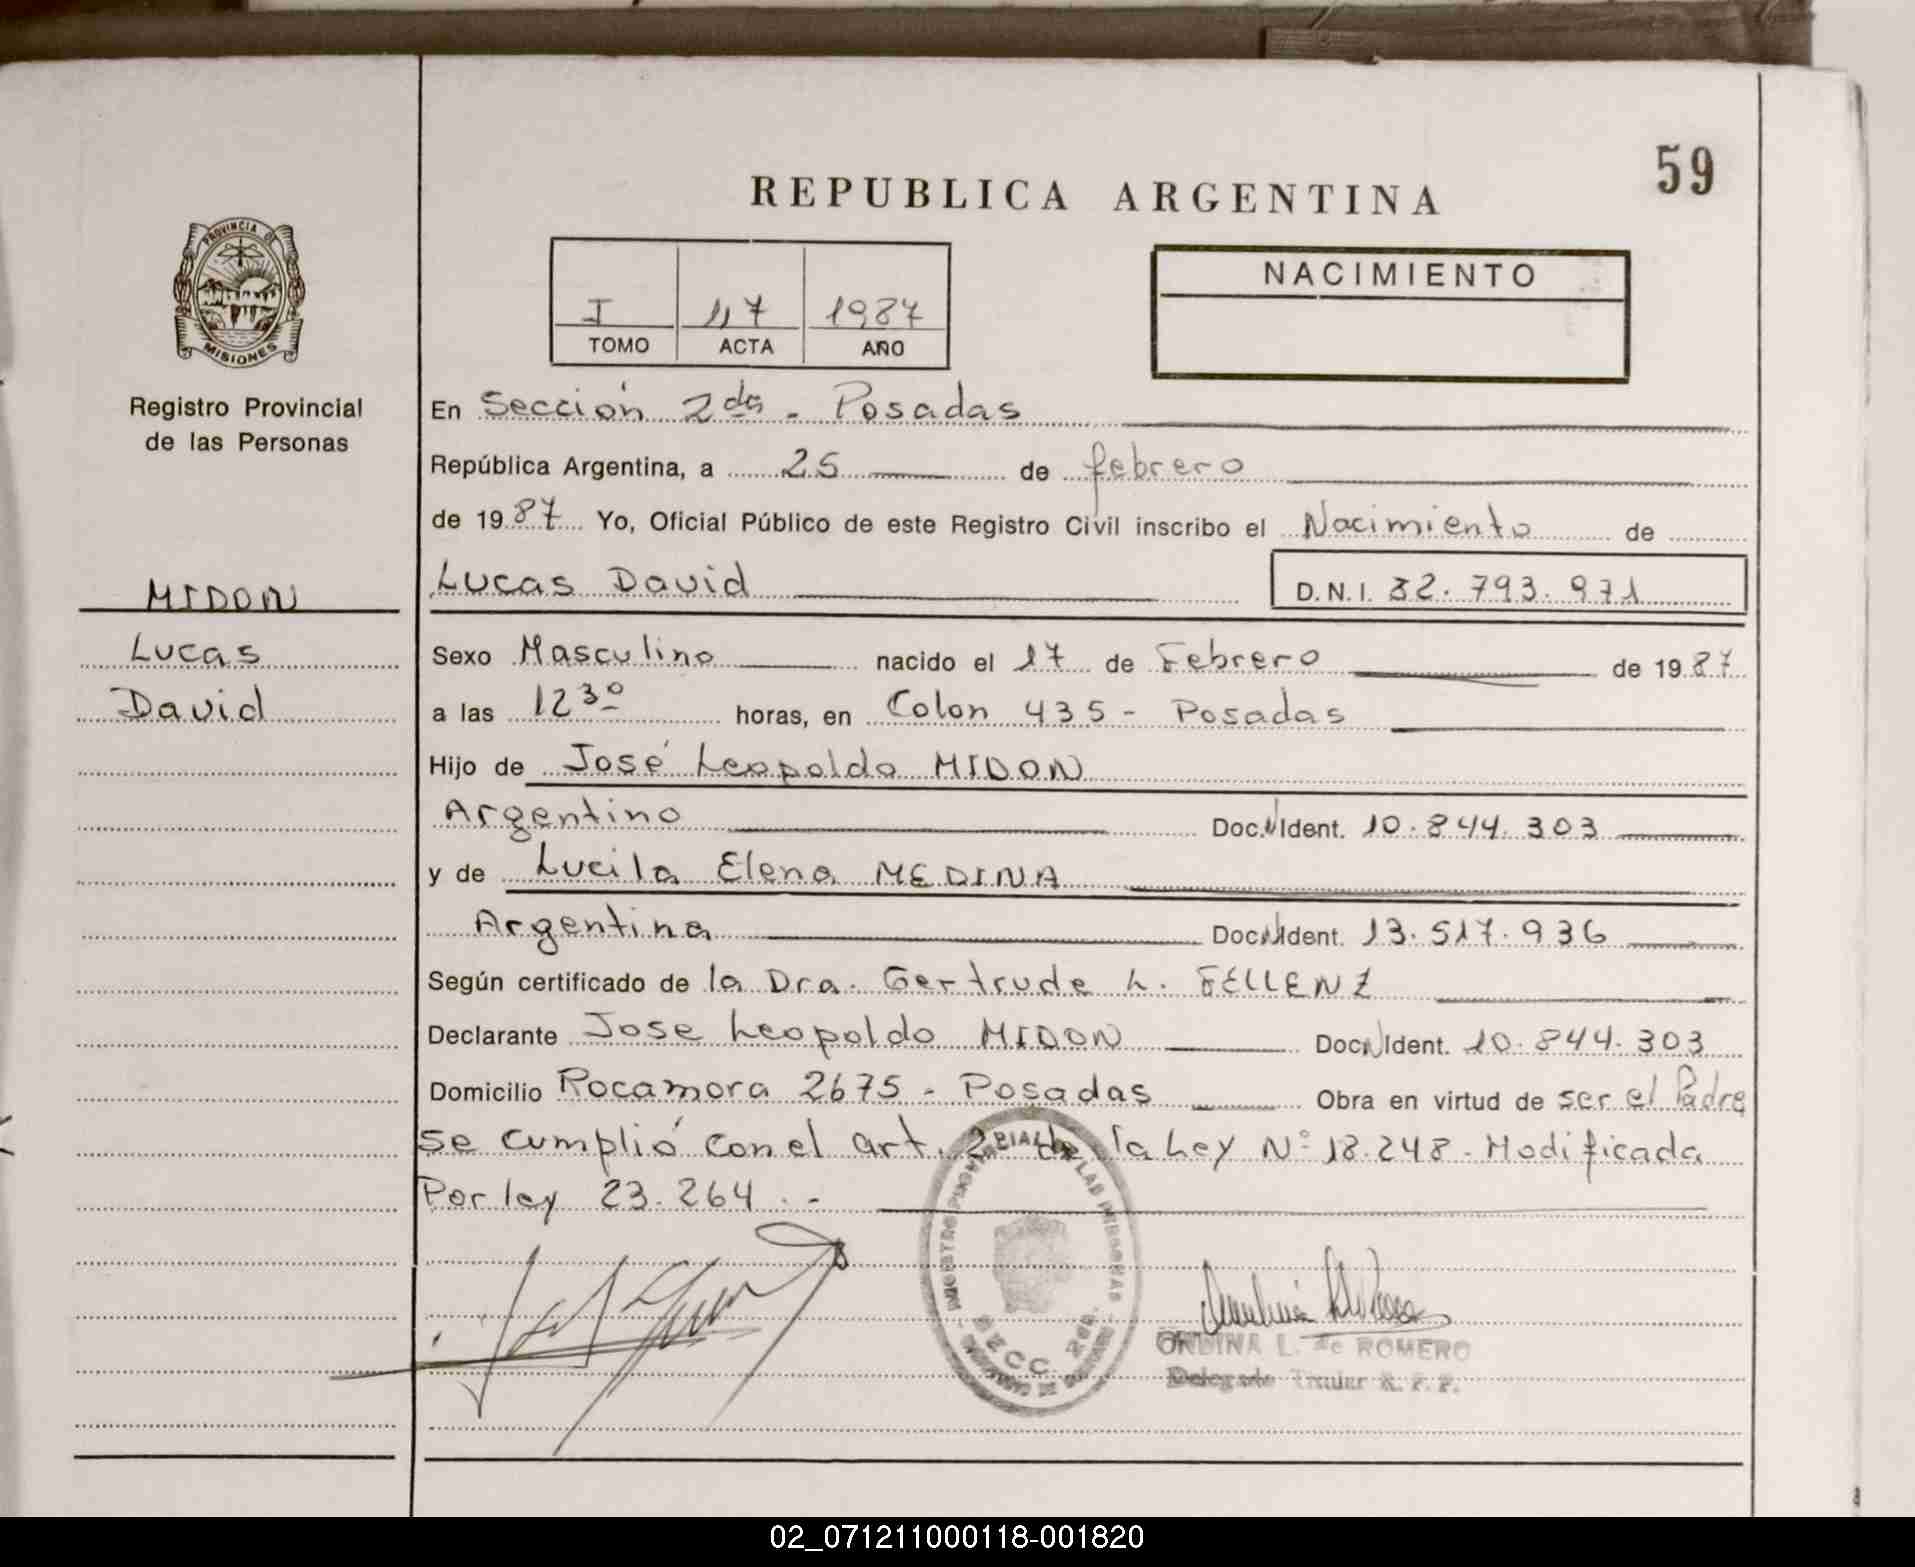 59
REPUBLICA ARGENTINA
PROVINCIA DE
MISIONES
Registro Provincial
de las Personas
I 117 1987
TOMO ACTA AÑO
NACIMIENTO
En Sección 2da - Posadas
República Argentina, a 25 de febrero
de 1987 Yo, Oficial Público de este Registro Civil inscribo el Nacimiento de
Lucas David D.N.I. 32.793.971
MIDON
Lucas
David
Sexo Masculino nacido el 17 de Febrero de 1987
a las 12 30 horas, en Colon 435 - Posadas
Hijo de José Leopoldo MIDON
Argentino Doc. Ident. 10.844.303
y de Lucila Elena MEDINA
Argentina Doc. Ident. 13.517.936
Según certificado de la Dra. Gertrude L. FELLENZ
Declarante Jose Leopoldo MIDON Doc. Ident. 10.844.303
Domicilio Rocamora 2675 - Posadas Obra en virtud de ser el Padre
se cumplió con el art. 2 de la Ley Nº 18.248 - Modificada
Por ley 23.264 . -
SECC. 2da.
ONDINA L. de ROMERO
Delegado Titular R. P. P.
02_071211000118-001820